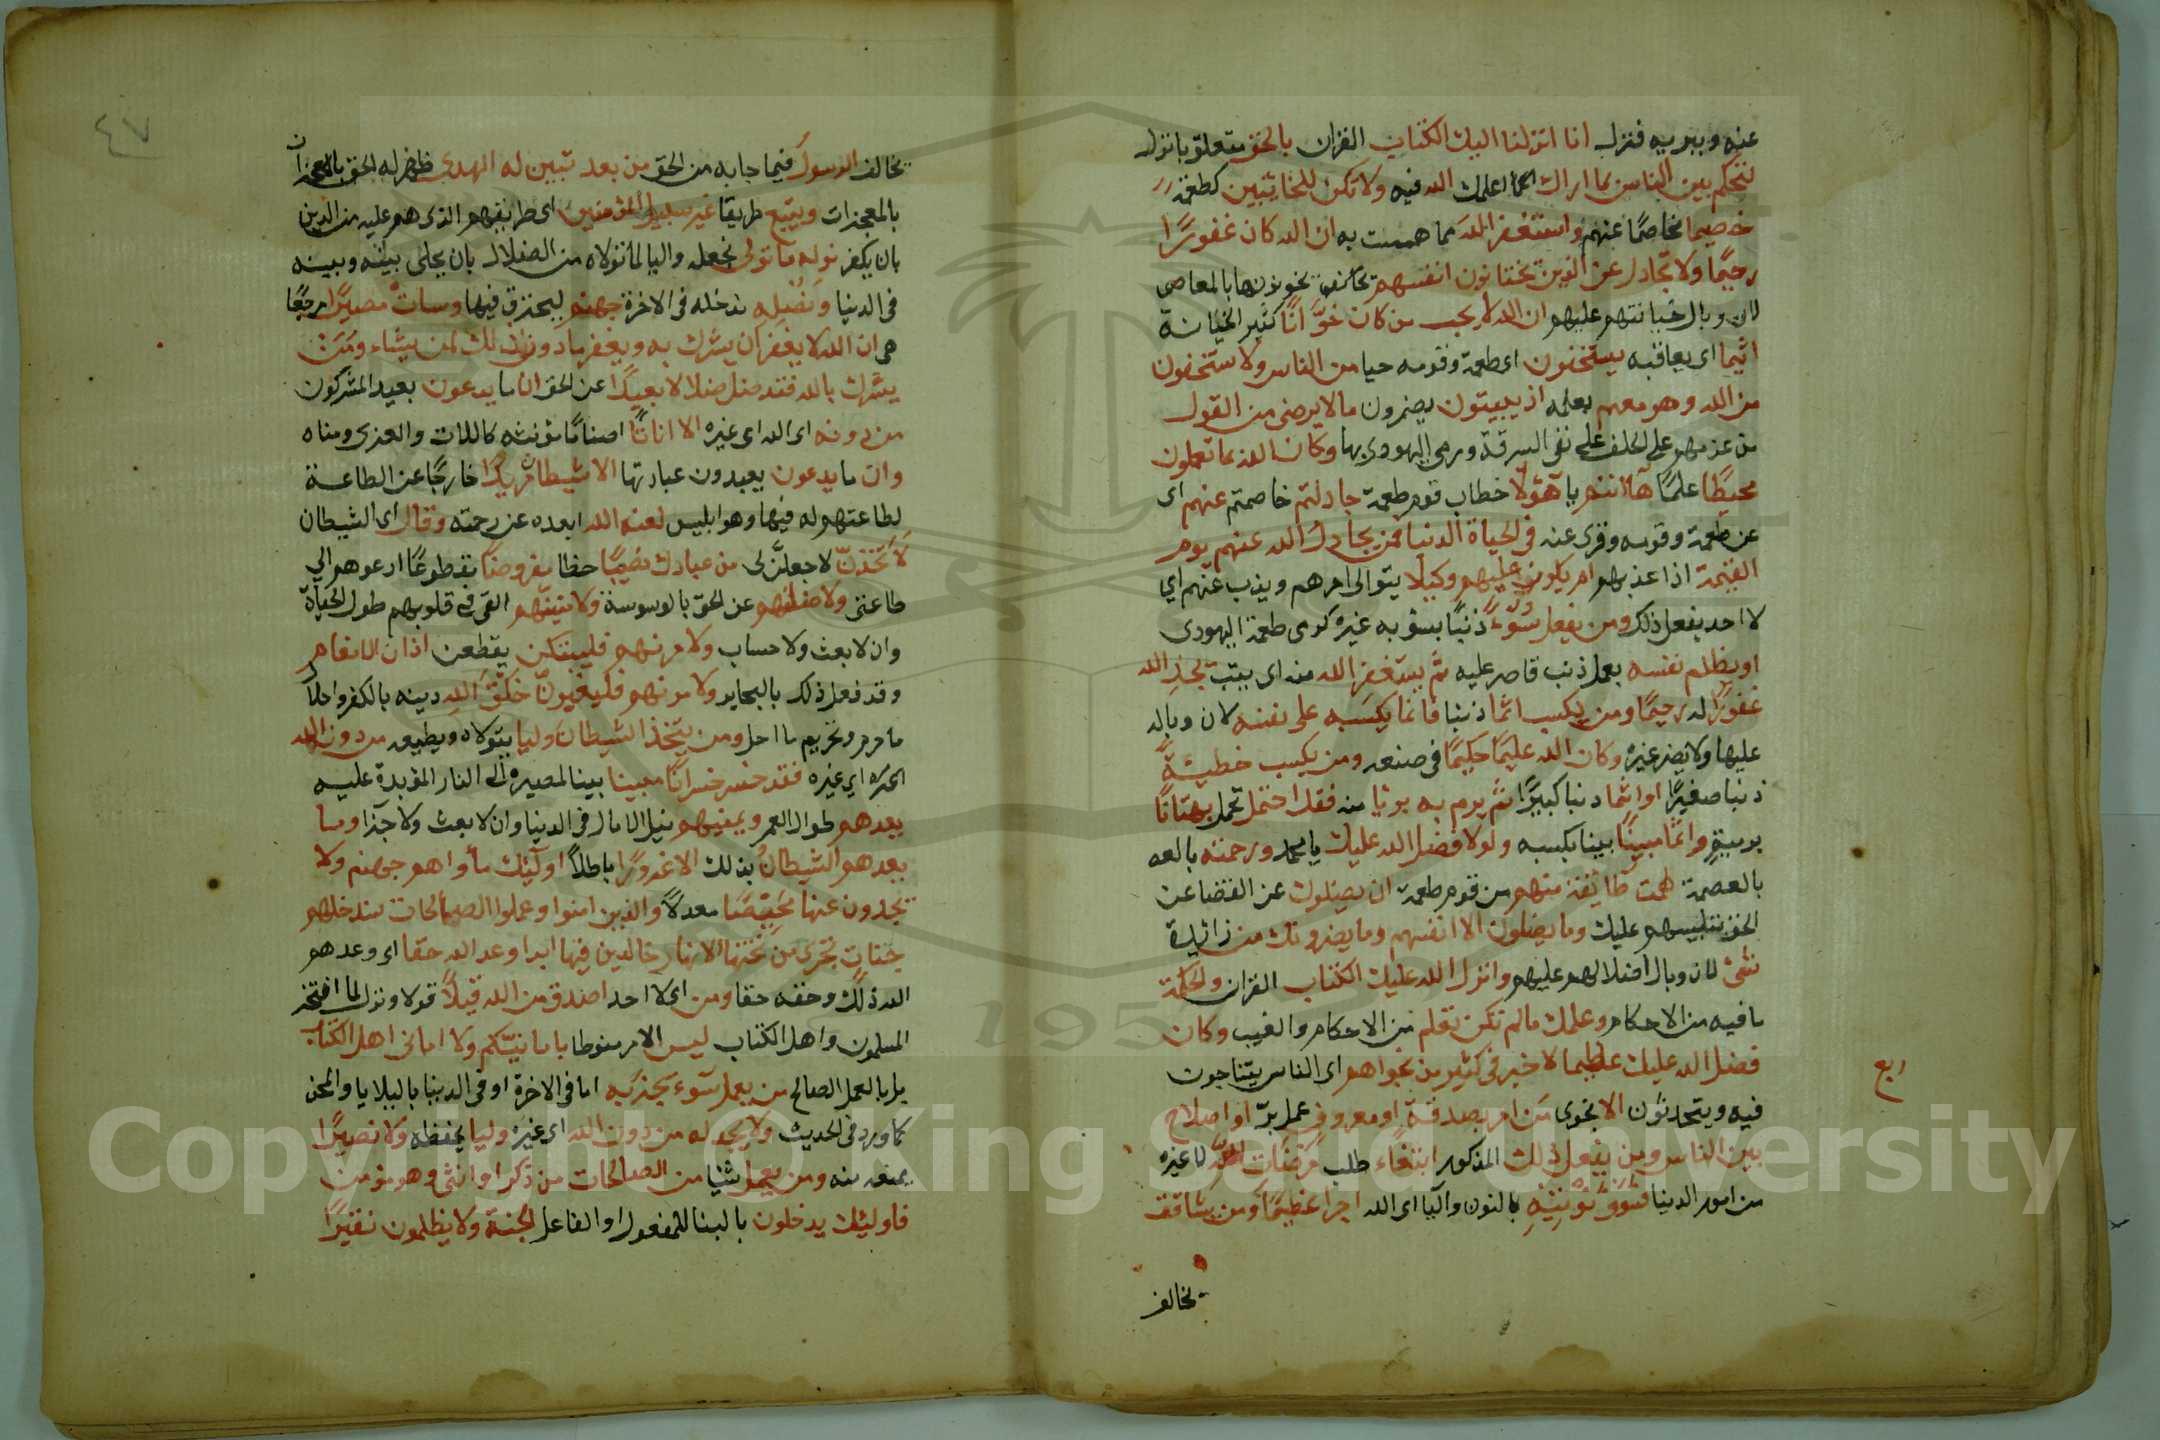 عنه ويبريه فنزل انا انزلنا اليك الكتاب القران بالحق متعلق بانزل
لتحكم بين الناس بما اراك اعلمك الله فيه ولا تكن للخائنين كطعمة
خصيما مخاصمًا عنهم واستغفر الله مما هممت به ان الله كان غفورًا
رحيمًا ولا تجادل عن الذين يختانون انفسهم يخونونها بالمعاصى
لان وبال خيانتهم عليهم ان الله لا يحب من كان خوَّانًا كثير الخيانة
اثيما اى يعاقبه يستخفون اى طعمة وقومه حيا من الناس ولا يستخفون
من الله وهو معهم بعلمه اذ يبيتون يضمرون ما لا يرضى من القول
من عزمهم على الحلف على نفى السرقة ورمى اليهودى بها وكان الله بما تعملون
محيطًا علمًا هآ انتم يا هؤلا خطاب قوم طعمة جادلتم خاصمتم عنهم اى
عن طعمة وقومه وقرى عنه فى الحياة الدنيا فمن يجادل الله عنهم يوم
القيمة اذا عذبهم ام من يكون عليهم وكيلا يتوالى امرهم ويذب عنهم اي
لا احد يفعل ذلك ومن يعمل سُوْءً ذنبًا يسؤ به غيره كرمى طعمة اليهودى
او يظلم نفسه بعمل ذنب قاصر عليه ثم يستغفر الله منه اى يتب يجد الله
غفورًا له رحيمًا ومن يكسب اثما ذنبا فانما يكسبه على نفسه لان وباله
عليها ولا يضر غيره وكان الله عليمًا حكيمًا فى صنعه ومن يكسب خطيئةً
ذنبا صغيرًا او اثما ذنبا كبيرًا ثم يرم به بريا منه فقد احتمل تحمل بهتانًا
برميه واثمًا مبينًا بينا بكسبه ولولا فضل الله عليك يا محمد ورحمته بالعه
بالعصمة لهمت طائفة منهم من قوم طعمة ان يضلوك عن القضا عن
الحق بتلبيسهم عليك وما يضلون الا انفسهم وما يضرونك من زائدة
شئ لان وبال اضلالهم عليهم وانزل الله عليك الكتاب القران والحكمة
ما فيه من الاحكام وعلمك ما لم تكن تعلم من الاحكام والغيب وكان
فضل الله عليك عظيما لا خير فى كثير من نجواهم اى الناس يتناجون
ربع
فيه ويتحدثون الا نجوى مَن امر بصدقة او معروف عمل برّ او اصلاح
بين الناس ومن يفعل ذلك المذكور ابتغاء طلب مرضات الله لا غيره
من امور الدنيا فسوف نؤتيه بالنون واليا اى الله اجرا عظيمًا ومن يشاقق
يخالف
٤٧
يخالف الرسول فيما جا به من الحق من بعد تبين له الهدى ظهر له الحق
بالمعجزات ويتبع طريقا غير سبيل المؤمنين اى طريقهم الذى هم عليه من الدين
بان يكفر نوله ما تولى نجعله واليا لما تولاه من الضلال بان يخلى بينه وبينه
فى الدنيا ونُصْلِه ندخله فى الاخرة جهنم ليحترق فيها وسات مصيرًا مرجعًا
هى ان الله لا يغفر ان يشرك به ويغفر ما دون ذلك لمن يشاء ومَن
يشرك بالله فقد ضل ضلالا بعيدًا عن الحق ان ما يدعون يعبد المشركون
من دونه اى الله اى غيره الا اناثًا اصنامًا مؤنثه كاللات والعزى ومناه
وان ما يدعون يعبدون عبادتها الا شيطانا مريدًا خارجًا عن الطاعة
لطاعتهم له فيها وهو ابليس لعنه الله ابعده عن رحمته وقال اى الشيطان
لَاَتَّخِذَنّ لاجعلنّ لى من عبادك نصيبًا حظا مفروضًا مقطوعًا ادعوهم الي
طاعتى ولاضلنهم عن الحق بالوسوسة ولامنينهم القى فى قلوبهم طول الحياة
وان لا بعث ولا حساب ولامرنهم فليبتكن يقطعن اذان الانعام
وقد فعل ذلك بالبحاير ولامرنهم فليغيرنّ خلق الله دينه بالكفر واحلال
ما حرم وتحريم ما احل ومن يتخذ الشيطان وليا يتولاه ويطيعه من دون الله
اى غيره فقد خسر خسرانًا مبينا بينا لمصيره الى النار المؤبدة عليه
يعدهم طوال العمر ويمنيهم نيل الامال فى الدنيا وان لا بعث ولا جزآ وما
يعدهم الشيطان بذلك الا غرورًا باطلاً اولئك مأواهم جهنم ولا
يجدون عنها محيصًا معدلاً والذين امنوا وعملوا الصالحات سندخلهم
جنات تجرى من تحتها الانهار خالدين فيها ابدا وعد الله حقا اى وعدهم
الله ذلك وحقه حقا ومن اى لا احد اصدق من الله قيلاً قولا ونزل لما افتخر
المسلمون واهل الكتاب ليس الامر منوطا بامانيّكم ولا امانى اهل الكتاب
بل بالعمل الصالح من يعمل سوء يجز به اما فى الاخرة او فى الدنيا بالبلايا والمحن
كما ورد فى الحديث ولا يجد له من دون الله اى غيره وليا يحفظه ولا نصيرًا
يمنعه منه ومن يعمل شيا من الصالحات من ذكر او انثى وهو مؤمن
فاولئك يدخلون بالبنا للمفعول او الفاعل الجنة ولا يظلمون نقيرًا
Copyright © King Saud University